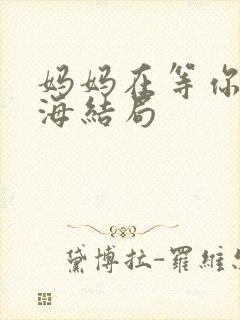 妈妈在等你
海结局
黛博拉-羅維